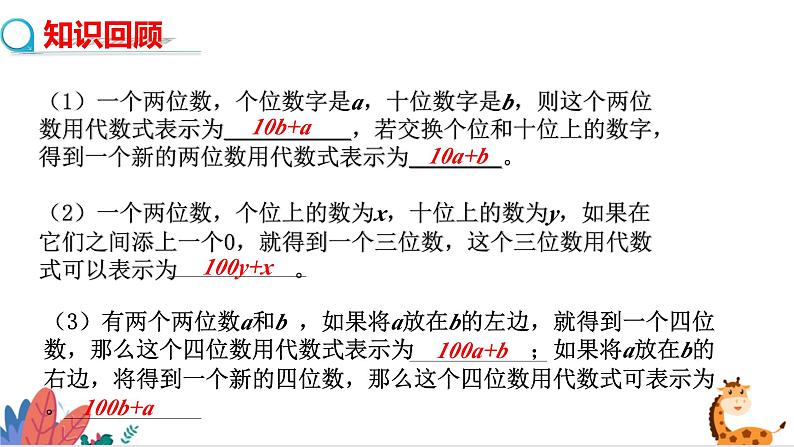 知识回顾
（1）一个两位数，个位数字是a，十位数字是b，则这个两位
数用代数式表示为10b+a，若交换个位和十位上的数字，
得到一个新的两位数用代数式表示为10a+b。
（2）一个两位数，个位上的数为x，十位上的数为y，如果在
它们之间添上一个0，就得到一个三位数，这个三位数用代数
式可以表示为100y+x。
（3）有两个两位数a和b ，如果将a放在b的左边，就得到一个四位
数，那么这个四位数用代数式表示为100a+b；如果将a放在b的
右边，将得到一个新的四位数，那么这个四位数用代数式可表示为
100b+a。